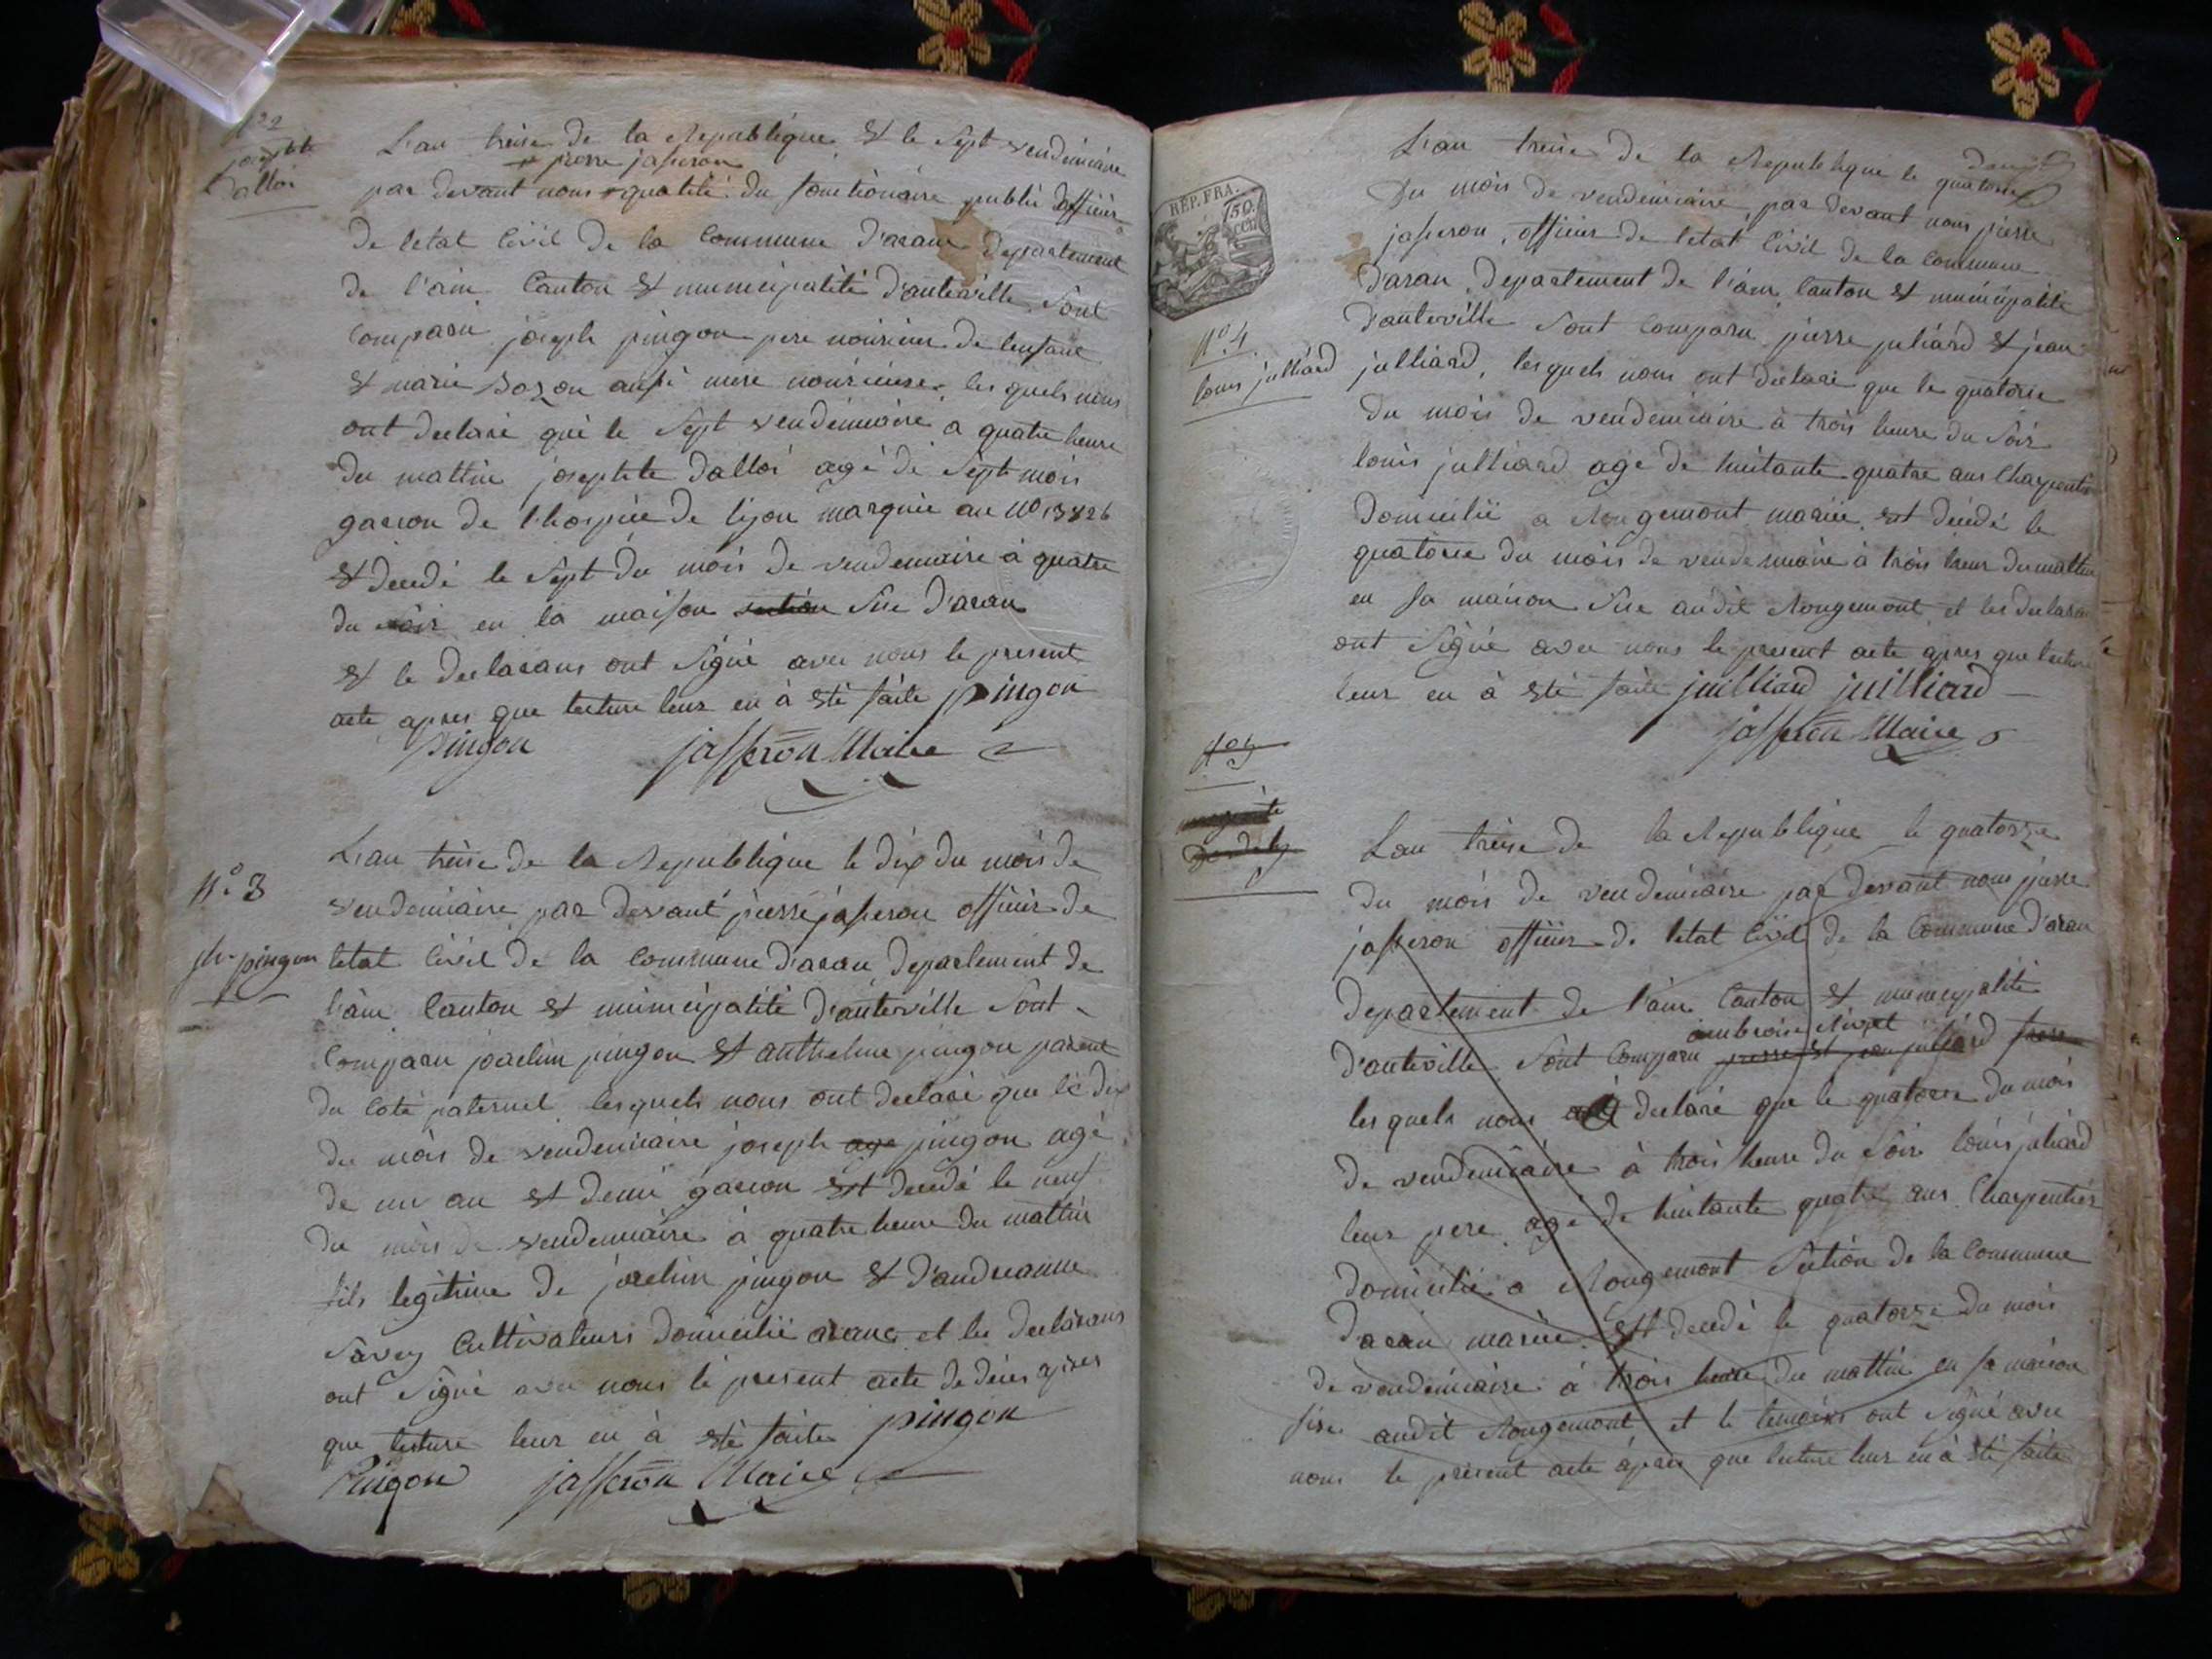 N° 2
josephte
Dalloi
L'an treise de la Republique & le sept vendemiaire
+ pierre jasseron
par devant nous + qualité du fonctionaire publié officier
de letat Civil de la Commune d'aran departement
de l'ain Canton & municipalité d'anteville Sont
Comparu joseph pingon pere nouricier de lenfant
& marie Bozon ausi mere nouricieure, les quels nous
ont declaré qué le Sept vendemiaire a quatre heure
du mattin josephte dalloi agé de Sept mois
garcon de lhospice de lyon marquée au N° 13826
& decedé le Sept du mois de vendemiaire à quatre
du soir en la maison Sise D'aran
& le declarans ont Signé avec nous le present
acte apres que lecture leur en à eté faite pingon
Pingon jasseron Maire
N° 3
jh. pingon
L'an treise de la Republique le dix du mois de
vendemiaire par devant pierre jasseron officier de
letat Civil de la Commune d'aran departement de
l'ain Canton & municipalité d'anteville Sont
Comparu joachim pingon & anthelme pingon parent
du coté paternel lesquels nous ont declaré que le dix
du mois de vendemiaire joseph age pingon agé
de un an & demi garcon est decedé le neuf
du mois de vendemiaire à quatre heure du mattin
fils legitime de joachim pingon & d'andreanne
Savey Cultivateurs domicilié aranc et les declarans
ont Signé avec nous le present acte de déces apres
que lecture leur en à eté faite pingon
Pingon jasseron Maire
RÉP. FRA.
50.
cen.
N°. 4
louis julliard
L'an treise de la Republique le quatorse
du mois de vendemiaire, par devant nous pierre
jasseron, officier de letat Civil de la Commune
d'aran departement de l'ain Canton & municipalité
d'anteville Sont Comparu pierre juliard & jean
julliard, lesquels nous ont declaré que le quatorse
du mois de vendemiaire à trois heure du Soir
louis julliard age de huitante quatre ans Charpentier
domicilié a Rougemont mariée est décédé le
quatorse du mois de vendemiaire à trois heur du mattin
en Sa maison Sise audit Rougemont et les declaran
ont Signé avec nous le present acte apres que lecture
leur en à eté faite juilliard juilliard
jasseron Maire
N° 5
L'an treise de la Republique le quatorze
du mois de vendemiaire par devant nous pierre
jasseron officier de letat Civil de la Commune d'aran
departement de l'ain Canton & municipalité
ambroise Nivet
d'anteville Sont Comparu pierre & jean juliard
les quels nous declaré que le quatorse du mois
de vendemiaire à trois heure du Soir louis juliard
leur pere agé de huitante quatre ans Charpentier
domicilié a Rougemont Section de la Commune
d'aran mariée est decedé le quatorze du mois
de vendemiaire à trois heure du mattin en Sa maison
sise audit Rougemont et le temoins ont Signé avec
nous le présent acte apres que lecture leur en à eté faite